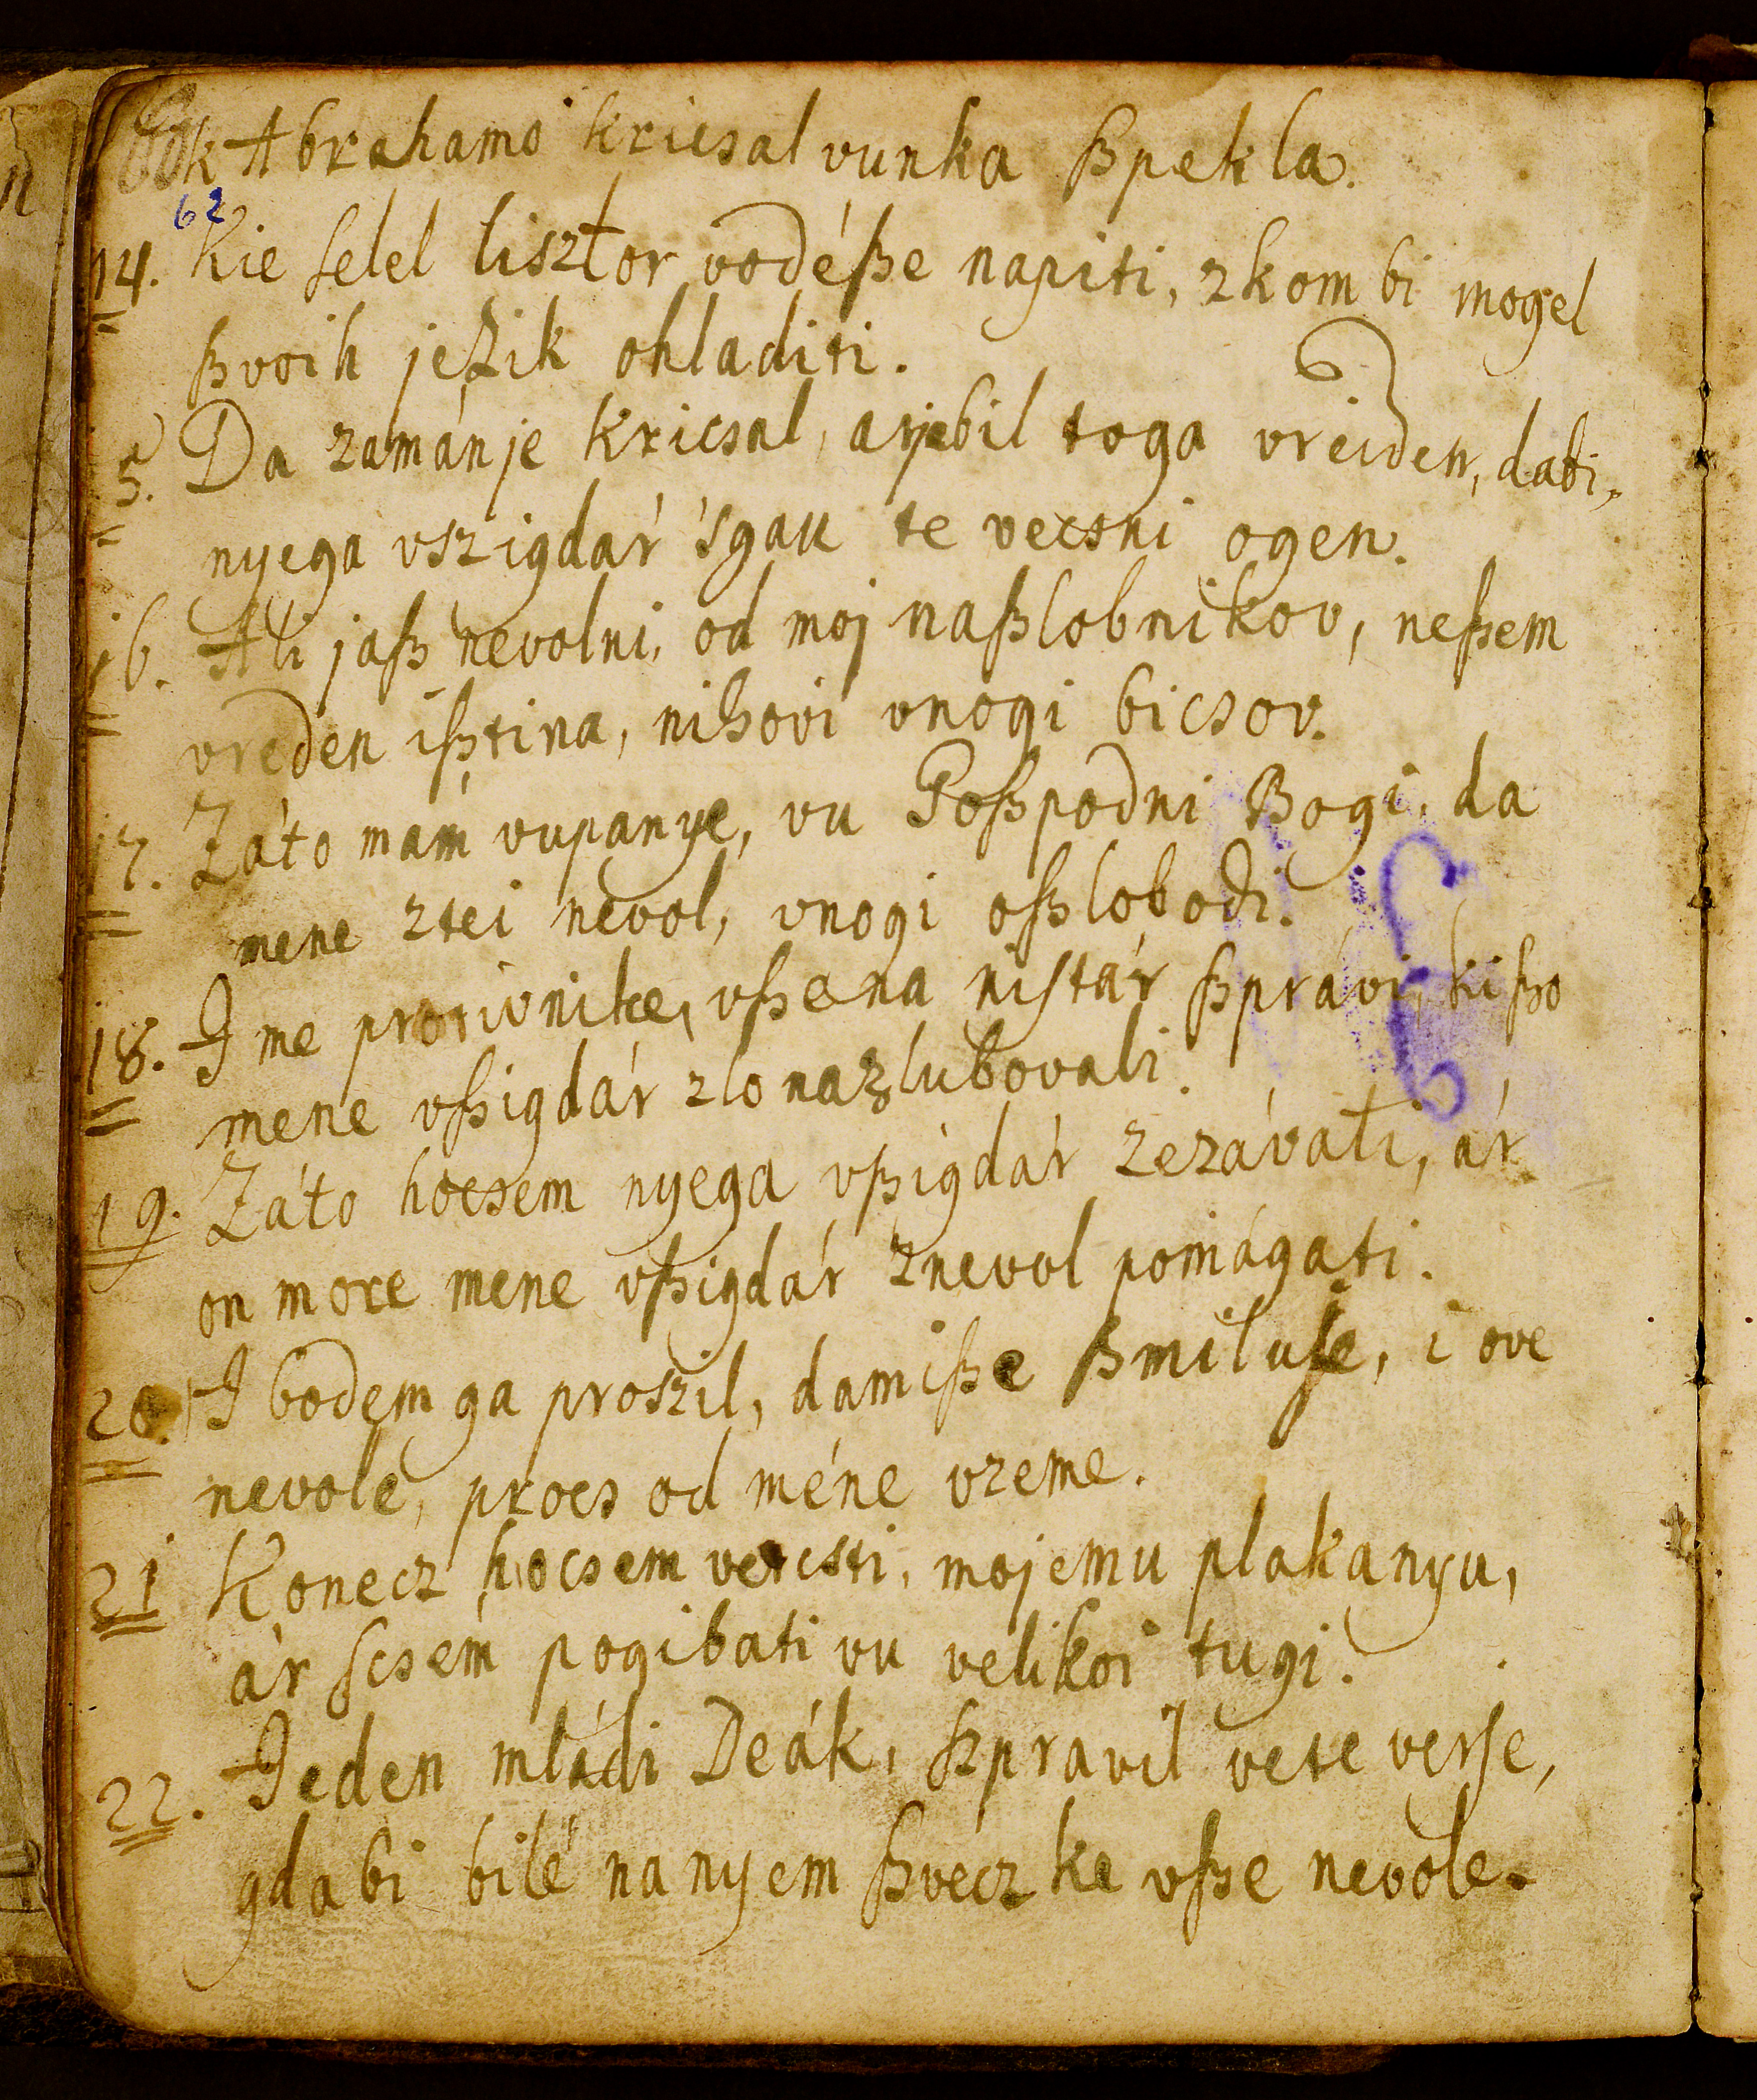 k Abrahamo kricsal vunka ßpekla.
62
14. Kie ſelel lisztor vodé ße napiti, zkom bi mogel
ßvoih jeßik ohladiti.
5. Da zamán je kricsal, arje bil toga vreiden, dabi,
nyega vszigdár 'sgau te vecsni ogen.
16. Ali jaß nevolni, od moj naßlobnikov, neßem
vreden ißtina, nihovi vnogi bicsov.
17. Záto mám vupanye, vu Goßpodni Bogi, da
mene ztei nevol, vnogi oßlobodi.
18. I me protivnike, vße na niſtár ßprávi, ki ßo
mene vßigdár zlo nazlubovali.
19. Záto hocsem nyega vßigdár zezávati, ár
on more mene vßigdár znevol pomágati.
20. I bodem ga proszil, damiße ßmiluſe, i ove
nevole, procs od méne vzeme.
21 Konecz hocsem vercsti, mojemu plakanyu,
ár ſcsém pogibati vu velikoi tugi.
22. Jeden mládi Deák, ſzpravil vete verſe,
gda bi bilé na nyem ßveczke vße nevole.